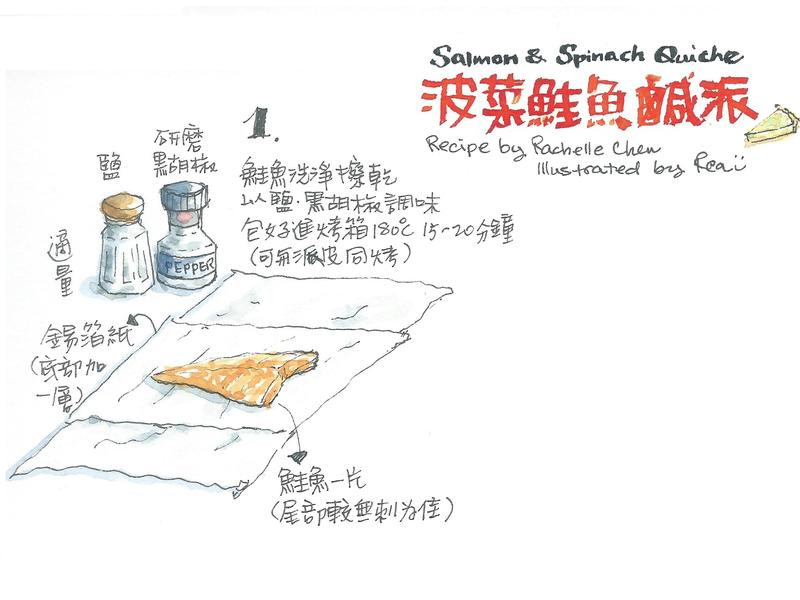 Salmon & Spinach Quiche
波菜鮭魚鹹派
Recipe by Rachelle Chen
Illustrated by Rea
1.
鮭魚洗淨擦乾
以鹽.黑胡椒調味
包好進烤箱180℃ 15~20分鐘
(可和派皮同烤)
鹽
研磨
黑胡椒
適量
PEPPER
錫箔紙
(底部加
一層)
鮭魚一片
(尾部較無刺为佳)